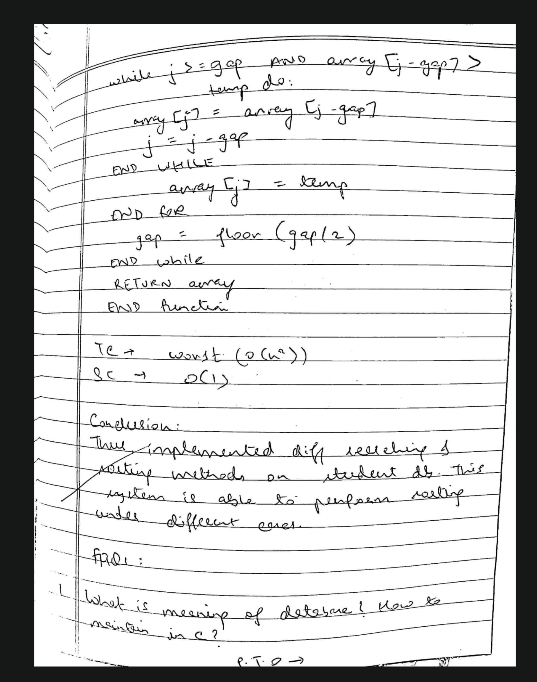 while j >= gap AND array [j - gap] >
temp do:
array [j] = array [j - gap]
j = j - gap
END WHILE
array [j] = temp
END FOR
gap = floor (gap/2)
END while
RETURN array
END function
TC → worst (O(n²))
SC → O(1)
Conclusion:
Thus implemented diff searching &
sorting methods on student db. This
system is able to perform sorting
under different cases.
FAQs:
1 What is meaning of database? How to
maintain in C?
P.T.O →